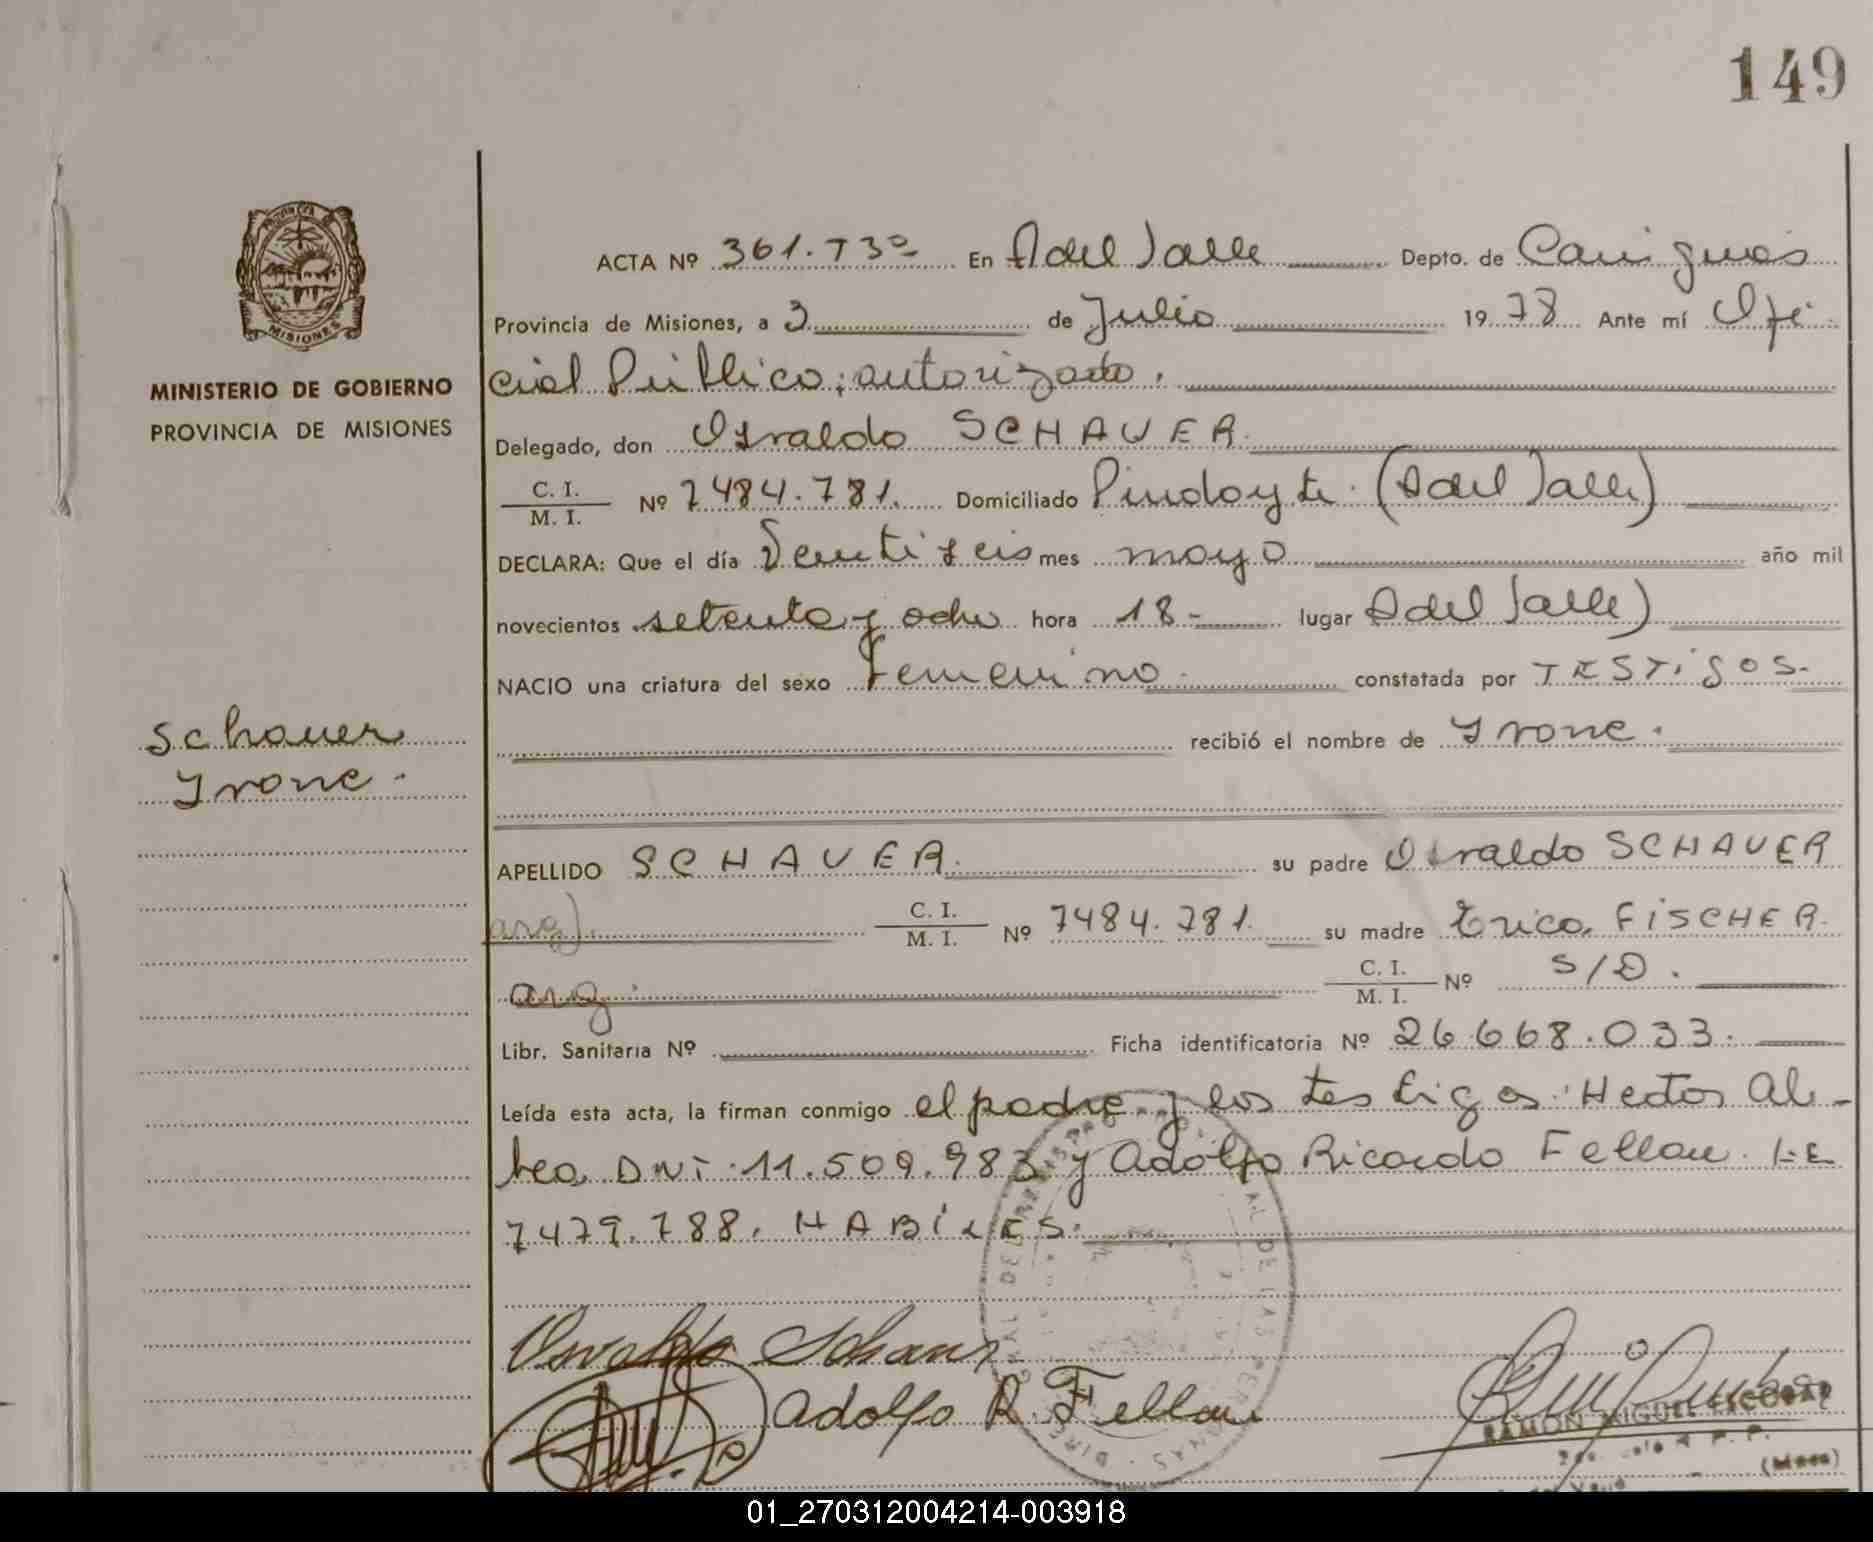 149
PROVINCIA
MISIONES
MINISTERIO DE GOBIERNO
PROVINCIA DE MISIONES
ACTA Nº 361.Tº3º En A del Valle Depto. de Cainguás
Provincia de Misiones, a 3 de Julio 1978 Ante mí Ofi
cial Público autorizado.
Delegado, don Osvaldo SCHAUER.
C. I. / M. I. Nº 7484.781. Domiciliado Pindoyti. (A del Valle)
DECLARA: Que el día Veintiseis mes mayo año mil
novecientos setenta y ocho hora 18- lugar A del Valle)
NACIO una criatura del sexo Femenino. constatada por TESTigos.
Schauer
Ivone.
recibió el nombre de Ivone.
APELLIDO SCHAUER. su padre Osvaldo SCHAUER
arg). C. I. / M. I. Nº 7484.781. su madre Erica FiSCHER.
arg. C. I. / M. I. Nº S/D.
Libr. Sanitaria Nº Ficha identificatoria Nº 26.668.033.
Leída esta acta, la firman conmigo el padre y los testigos: Hector
DNi.11.509.983 y Adolfo Ricardo Fellau. L.E
7479.788. HABiLES.
Osvaldo Schauer
Adolfo R. Fellau
RAMON MIGUEL ESCOBAR
(Mnes)
01_270312004214-003918